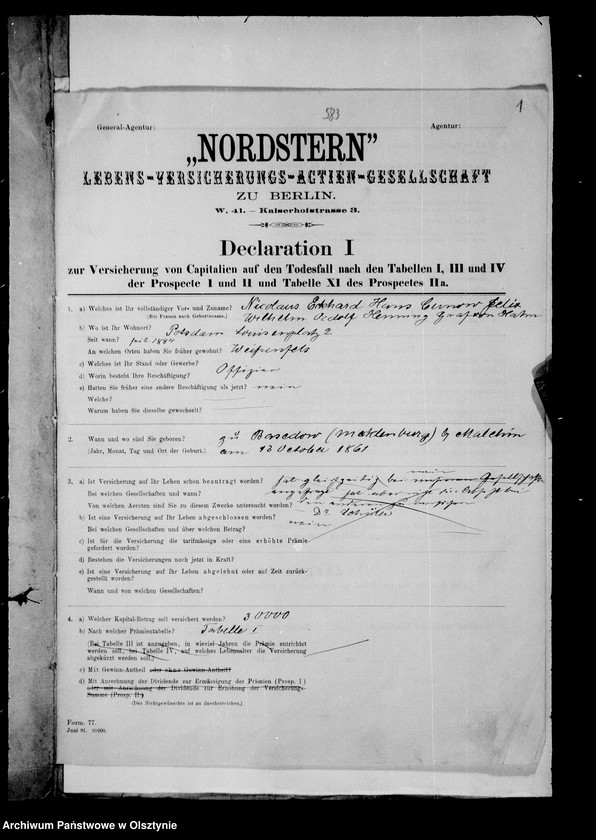 583
1
General-Agentur:
Agentur:
„NORDSTERN”
LEBENS-VERSICHERUNGS-ACTIEN-GESELLSCHAFT
ZU BERLIN.
W. 41. – Kaiserhofstrasse 3.
Declaration I
zur Versicherung von Capitalien auf den Todesfall nach den Tabellen I, III und IV
der Prospecte I und II und Tabelle XI des Prospectes IIa.
1. a) Welches ist Ihr vollständiger Vor- und Zuname? Nicolaus Eckhard Hans Cernow Felix
(Bei Frauen auch Geburtsname.) Wilhelm Adolf Henning Graf von Hahn
b) Wo ist Ihr Wohnort? Potsdam Louisenplatz 2
Seit wann? seit 1884
An welchen Orten haben Sie früher gewohnt? Weißenfels
c) Welches ist Ihr Stand oder Gewerbe? Offizier
d) Worin besteht Ihre Beschäftigung?
e) Hatten Sie früher eine andere Beschäftigung als jetzt? nein
Welche?
Warum haben Sie dieselbe gewechselt?
2. Wann und wo sind Sie geboren? zu Basedow (Mecklenburg) by Malchin
(Jahr, Monat, Tag und Ort der Geburt.) am 13 October 1861
3. a) Ist Versicherung auf Ihr Leben schon beantragt worden? nein
hat gleichzeitig bei
Bei welchen Gesellschaften und wann?
Von welchen Aerzten sind Sie zu diesem Zwecke untersucht worden?
Dr.
b) Ist eine Versicherung auf Ihr Leben abgeschlossen worden? nein
Bei welchen Gesellschaften und über welchen Betrag?
c) Ist für die Versicherung die tarifmässige oder eine erhöhte Prämie
gefordert worden?
d) Bestehen die Versicherungen noch jetzt in Kraft?
e) Ist eine Versicherung auf Ihr Leben abgelehnt oder auf Zeit zurück-
gestellt worden?
Wann und von welchen Gesellschaften?
4. a) Welcher Kapital-Betrag soll versichert werden? 30000
b) Nach welcher Prämientabelle? Tabelle I
(Bei Tabelle III ist anzugeben, in wieviel Jahren die Prämie entrichtet
werden soll, bei Tabelle IV, auf welches Lebensalter die Versicherung
abgekürzt werden soll.)
c) Mit Gewinn-Antheil oder ohne Gewinn-Antheil?
d) Mit Anrechnung der Dividende zur Ermässigung der Prämien (Prosp. I)
oder mit Anrechnung der Dividende zur Erhöhung der Versicherungs-
Summe (Prosp. II)
(Das Nichtgewünschte ist zu durchstreichen.)
Form. 77.
Juni 91. 10000.
Archiwum Państwowe w Olsztynie